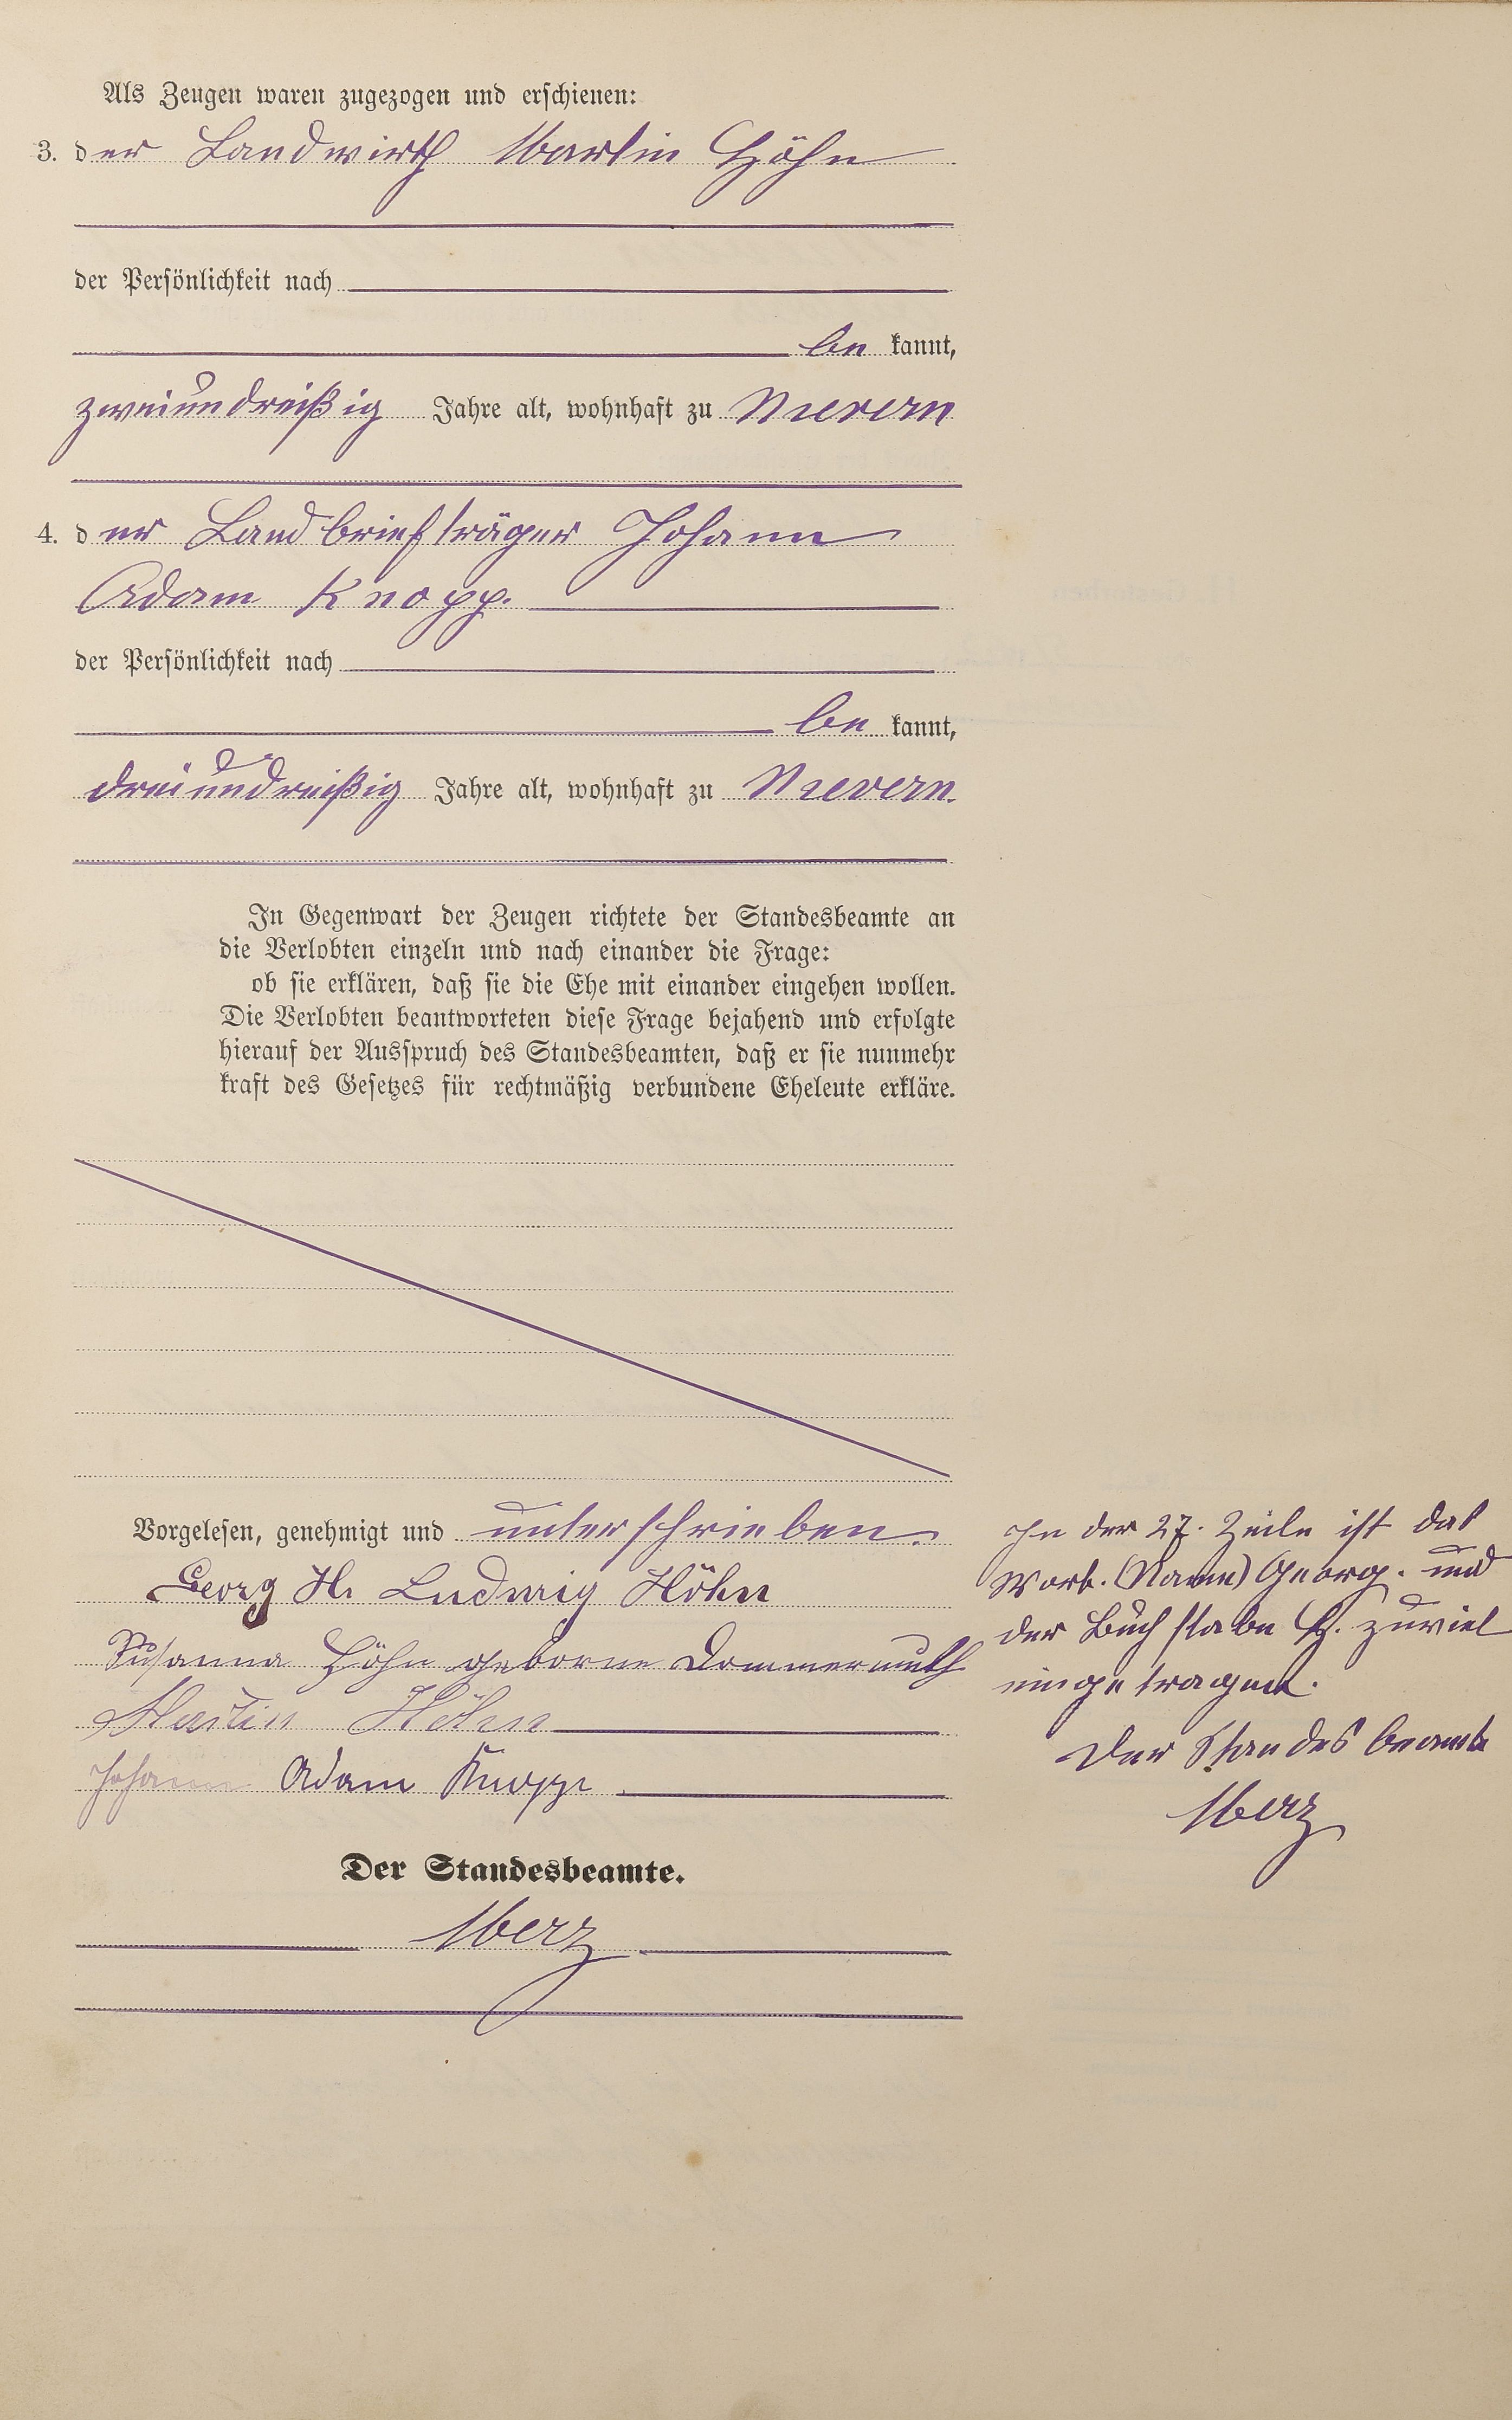 Als Zeugen waren zugezogen und erschienen:
3. der Landwirth Martin Höhn
der Persönlichkeit nach
be kannt,
zweiundreißig Jahre alt, wohnhaft zu Nievern
4. der Landbriefträger Johann
Adam Knopp.
der Persönlichkeit nach
be kannt,
dreiundreißig Jahre alt, wohnhaft zu Nievern.
In Gegenwart der Zeugen richtete der Standesbeamte an
die Verlobten einzeln und nach einander die Frage:
ob sie erklären, daß sie die Ehe mit einander eingehen wollen.
Die Verlobten beantworteten diese Frage bejahend und erfolgte
hierauf der Ausspruch des Standesbeamten, daß er sie nunmehr
kraft des Gesetzes für rechtmäßig verbundene Eheleute erkläre.
Vorgelesen, genehmigt und unterschrieben.
Georg H. Ludwig Höhn
Susanna Höhn geborne Dommermuth
Martin Höhn
Johann Adam Knopp
Der Standesbeamte.
Merz
In der 27. Zeile ist das
Wort. (Name) Georg. und
der Buchstabe H. zuviel
eingetragen.
Der Standesbeamte
Merz